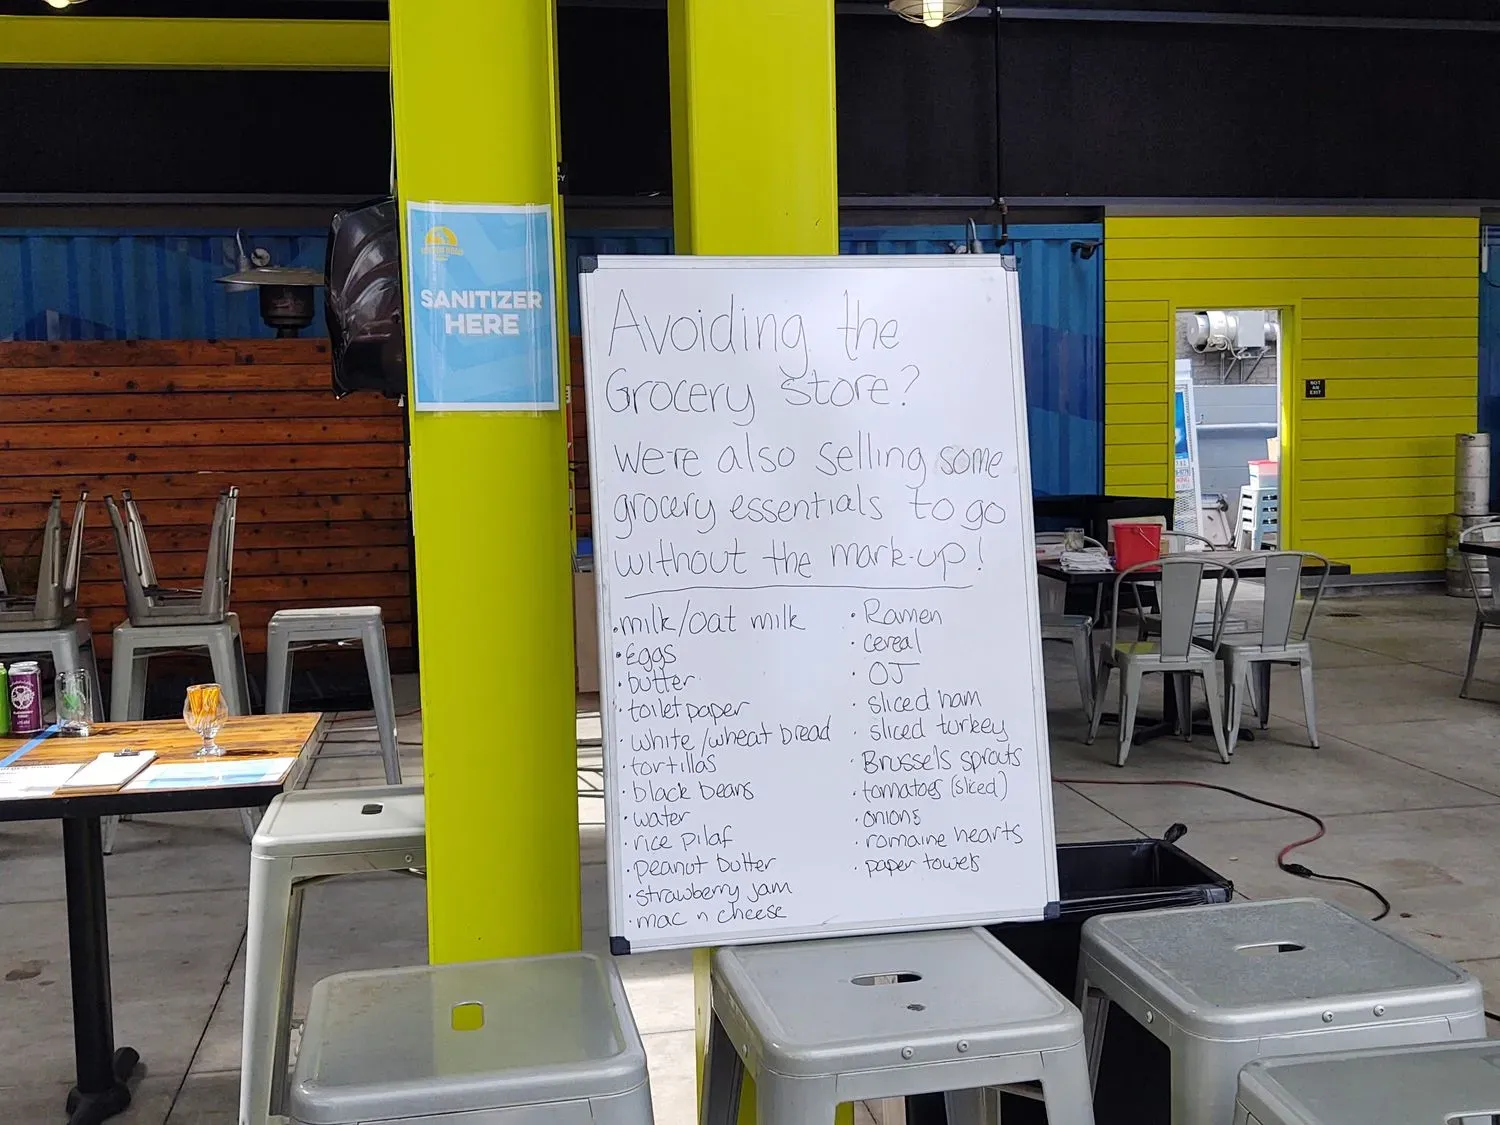 SANITIZER
HERE
Avoiding the
Grocery store?
We're also selling some
grocery essentials to go
without the mark-up!
• milk/oat milk
• eggs
• butter
• toilet paper
• white/wheat bread
• tortillas
• black beans
• water
• rice pilaf
• peanut butter
• strawberry jam
• mac n cheese
• Ramen
• cereal
• OJ
• sliced ham
• sliced turkey
• Brussels sprouts
• tomatoes (sliced)
• onions
• romaine hearts
• paper towels
NOT
AN
EXIT